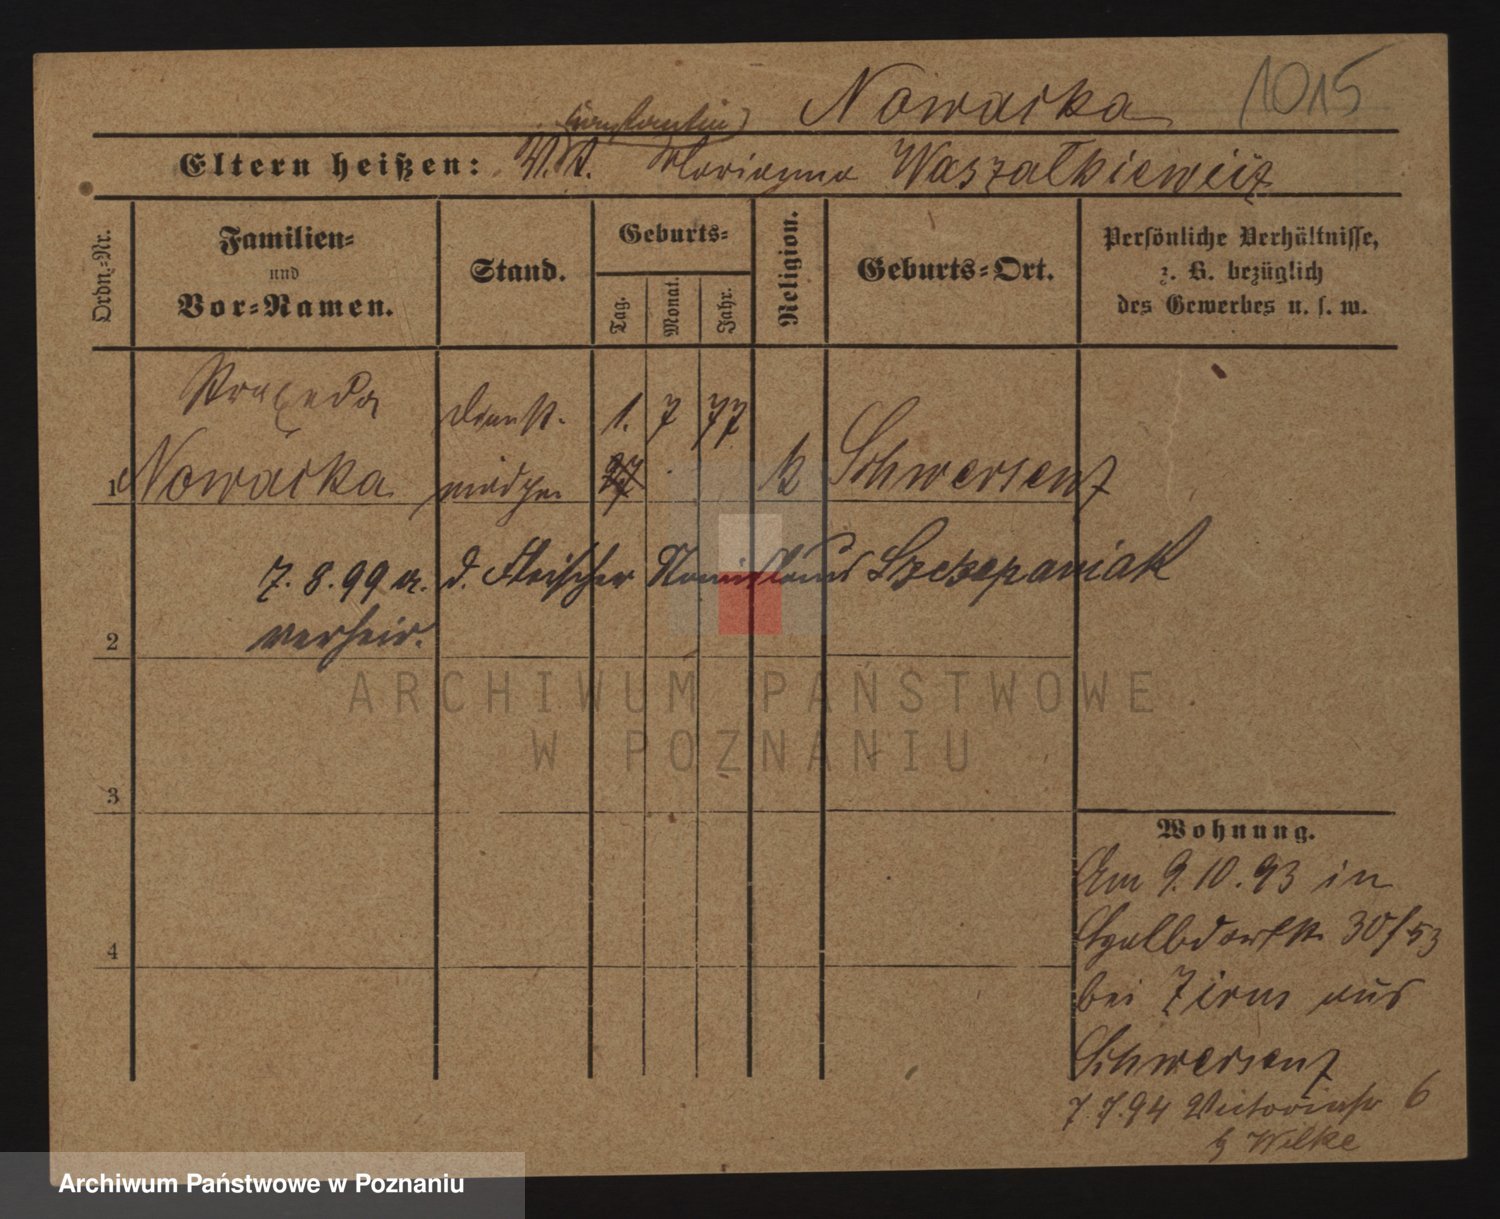 Nowacka 1015
(Constantin)
Eltern heißen: V. A. Marianna Waszalkiewicz
Ordn.-Nr.
Familien-
und
Vor-Namen.
Stand.
Geburts-
Tag.
Monat.
Jahr.
Religion.
Geburts-Ort.
Persönliche Verhältnisse,
z. B. bezüglich
des Gewerbes u. s. w.
Praxeda dienst- 1. 7 77
1 Nowacka mädchen k Schwersenz
7.8.99 a. d. Fleischer Stanislaus Szczepaniak
2 verheir.
3
4
Wohnung.
Am 9.10.93 in
30/53
bei aus
Schwersenz
7.7.94 Victoriastr 6
b Wilke
ARCHIWUM PAŃSTWOWE
W POZNANIU
Archiwum Państwowe w Poznaniu